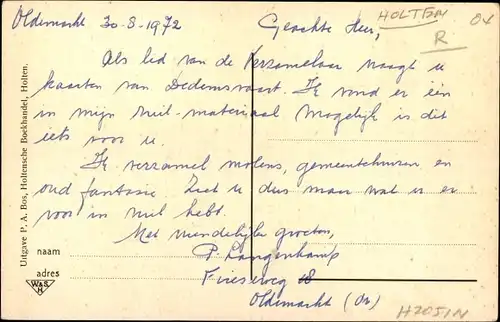 Oldemarkt 30-8-1972
HOLTEN
Geachte Heer,
R
Als lid van de Verzamelaar vraagt u
kaarten van Dedemsvaart. Ik vond er één
in mijn ruil-materiaal mogelijk is dit
iets voor u.
Ik verzamel molens, gemeentehuizen en
oud fantasie. Ziet u dus maar wat u er
voor in ruil hebt.
Met vriendelijke groeten,
P. Langenkamp
Frieseweg 18
Oldemarkt (Ov)
naam
adres
W&S
H
Uitgave P. A. Bos, Holtensche Boekhandel, Holten.
H2051N